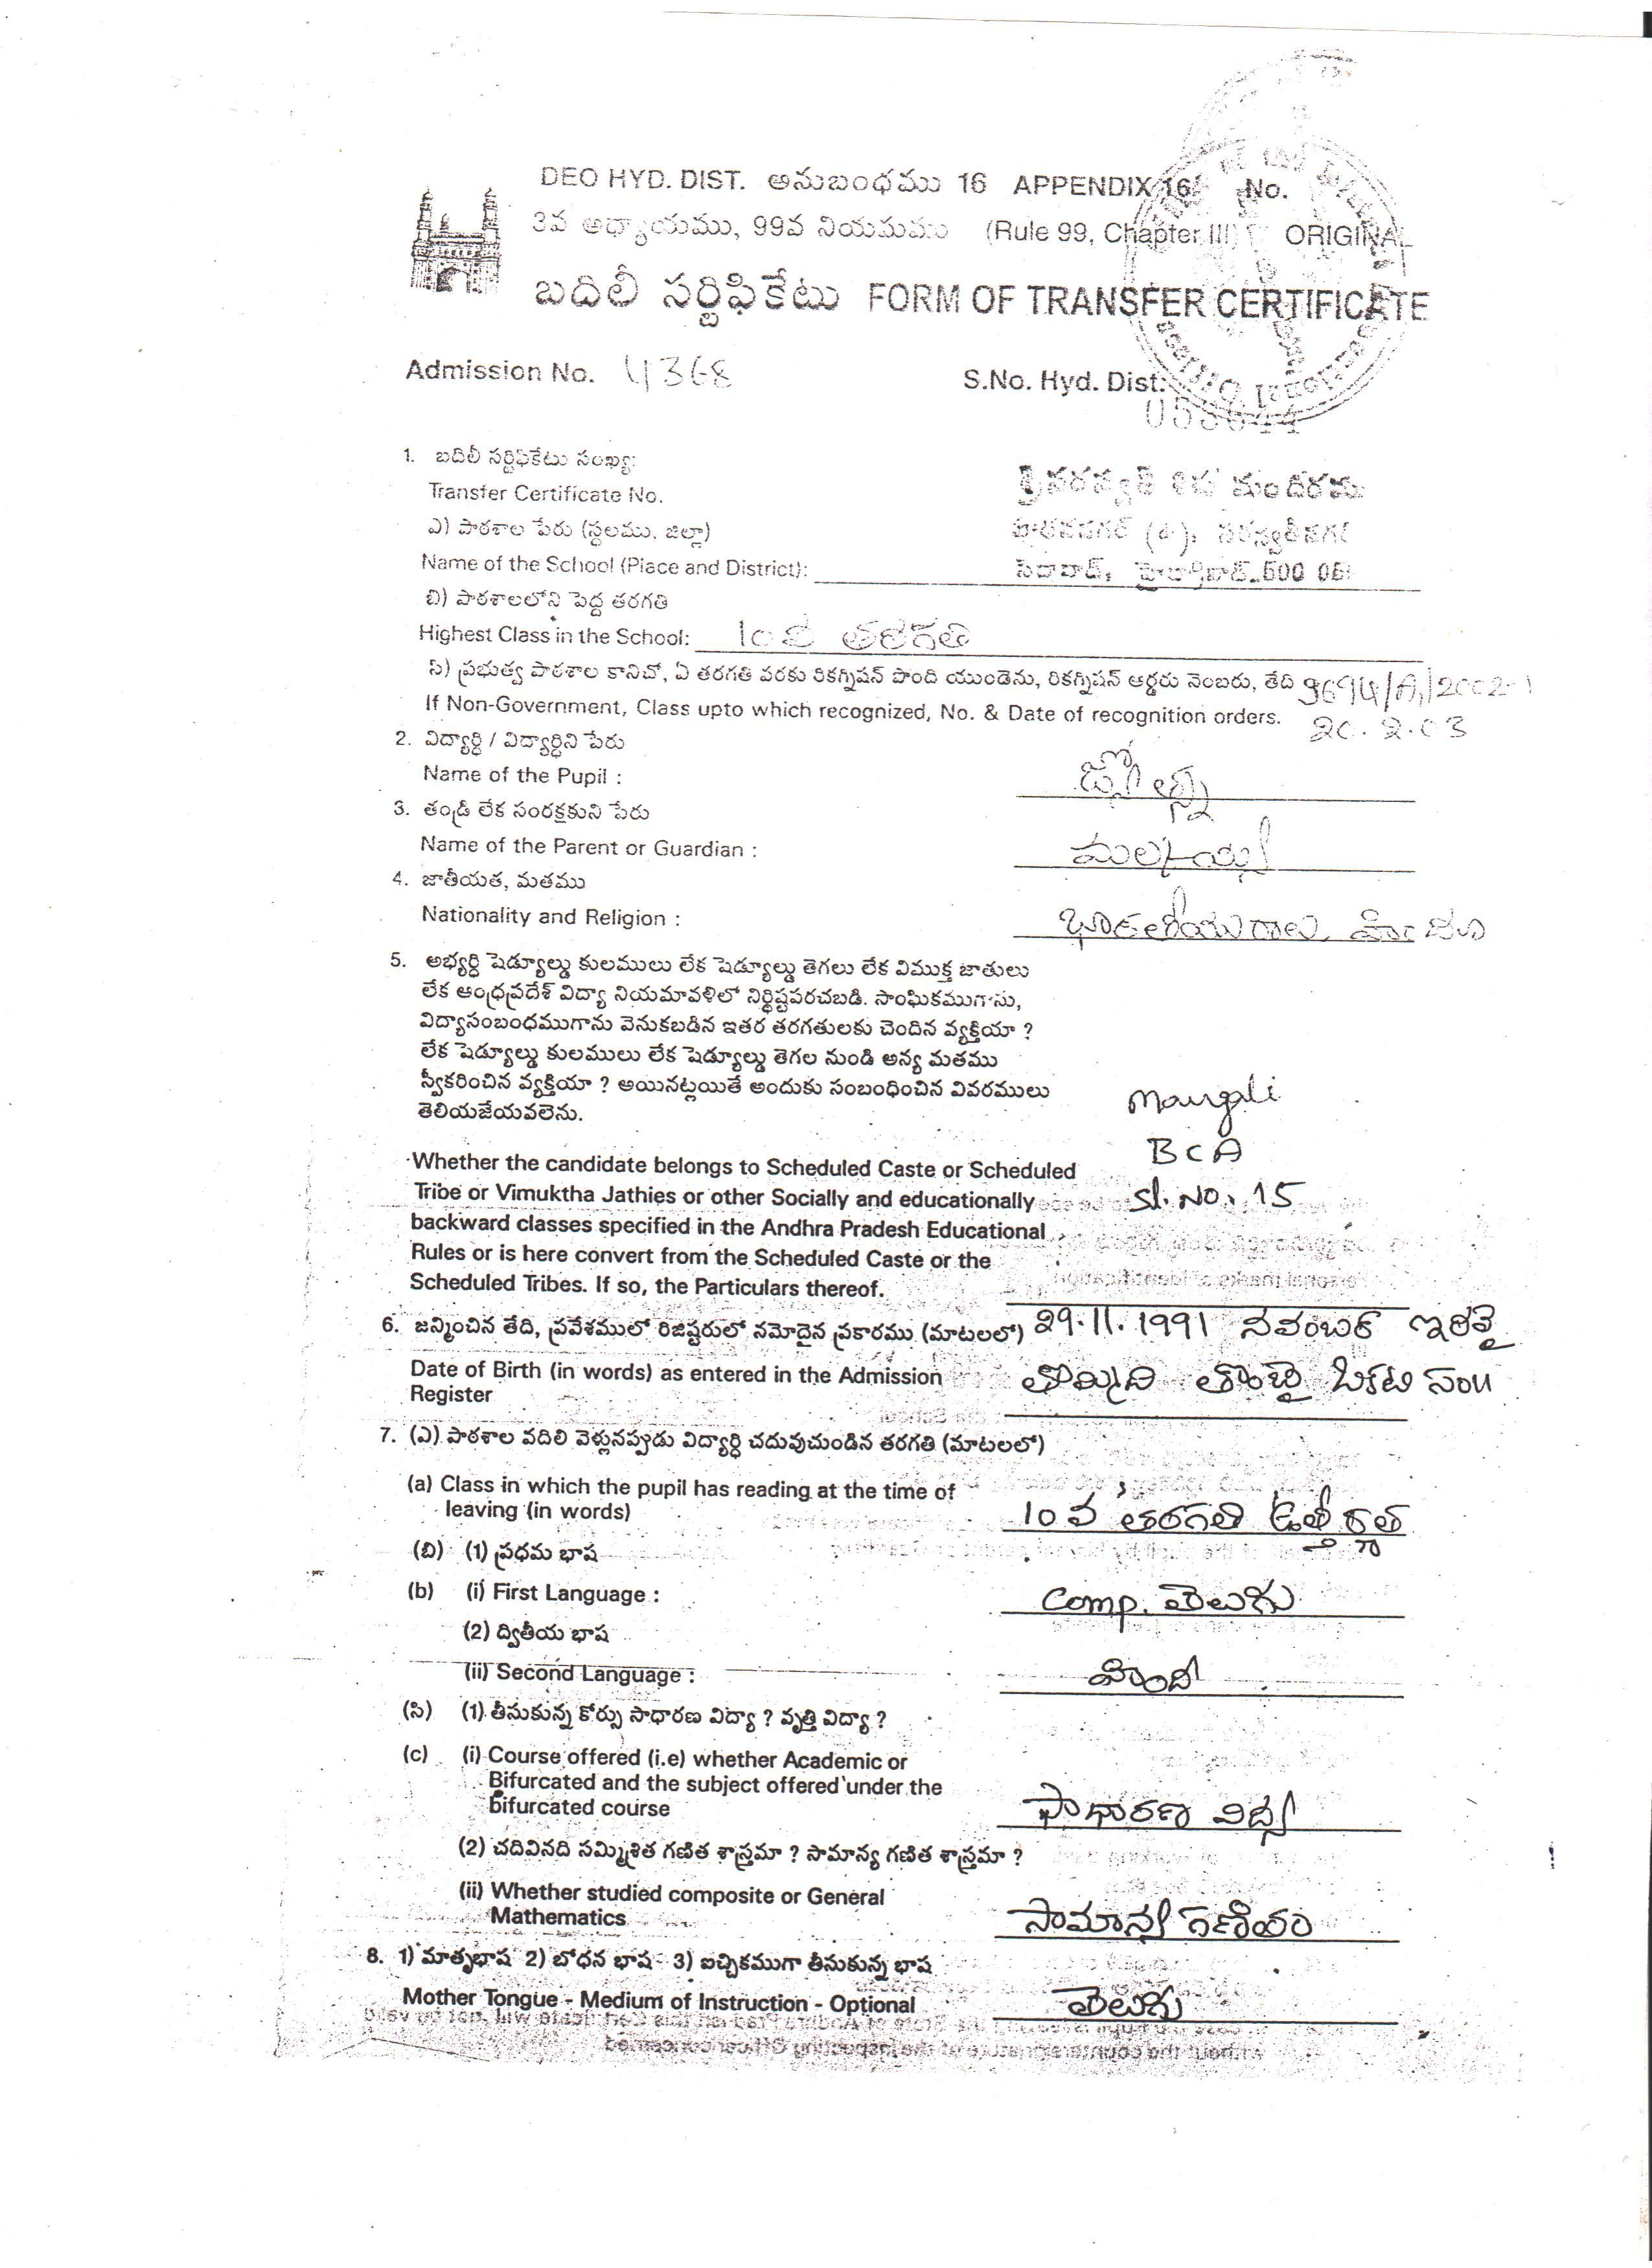 DEO HYD. DIST. అనుబంధము 16 APPENDIX 16 No.
3వ అధ్యాయము, 99వ నియమము (Rule 99, Chapter III) ORIGINAL
బదిలీ సర్టిఫికేటు FORM OF TRANSFER CERTIFICATE
Admission No. 4368
S.No. Hyd. Dist:
1. బదిలీ సర్టిఫికేటు సంఖ్య:
Transfer Certificate No.
శ్రీ సరస్వతీ శిశు మందిరము
ఎ) పాఠశాల పేరు (స్థలము, జిల్లా)
(ఉ), సరస్వతీనగర్
Name of the School (Place and District):
సైదాబాద్, హైద్రాబాద్-500 05
బి) పాఠశాలలోని పెద్ద తరగతి
Highest Class in the School: 10వ తరగతి
సి) ప్రభుత్వ పాఠశాల కానిచో, ఏ తరగతి వరకు రికగ్నిషన్ పొంది యుండెను, రికగ్నిషన్ ఆర్డరు నెంబరు, తేది 9694/A1/2002-1
If Non-Government, Class upto which recognized, No. & Date of recognition orders. 20.2.03
2. విద్యార్ధి / విద్యార్ధిని పేరు
Name of the Pupil : జ్యోత్స్న
3. తండ్రి లేక సంరక్షకుని పేరు
Name of the Parent or Guardian : మల్లయ్య
4. జాతీయత, మతము
Nationality and Religion : భారతీయురాలు, హిందూ
5. అభ్యర్ధి షెడ్యూల్డు కులములు లేక షెడ్యూల్డు తెగలు లేక విముక్త జాతులు
లేక ఆంధ్రప్రదేశ్ విద్యా నియమావళిలో నిర్ధిష్టపరచబడి. సాంఘికముగాను,
విద్యాసంబంధముగాను వెనుకబడిన ఇతర తరగతులకు చెందిన వ్యక్తియా ?
లేక షెడ్యూల్డు కులములు లేక షెడ్యూల్డు తెగల నుండి అన్య మతము
స్వీకరించిన వ్యక్తియా ? అయినట్లయితే అందుకు సంబంధించిన వివరములు
తెలియజేయవలెను.
Mangali
BCA
Whether the candidate belongs to Scheduled Caste or Scheduled
Tribe or Vimuktha Jathies or other Socially and educationally Sl. No. 15
backward classes specified in the Andhra Pradesh Educational
Rules or is here convert from the Scheduled Caste or the
Scheduled Tribes. If so, the Particulars thereof.
6. జన్మించిన తేది, ప్రవేశములో రిజిష్టరులో నమోదైన ప్రకారము (మాటలలో) 29.11.1991 నవంబర్ ఇరవై
Date of Birth (in words) as entered in the Admission తొమ్మిది తొంభై ఒకటి సం॥
Register
7. (ఎ) పాఠశాల వదిలి వెళ్లునప్పుడు విద్యార్ధి చదువుచుండిన తరగతి (మాటలలో)
(a) Class in which the pupil has reading at the time of
leaving (in words) 10వ తరగతి ఉత్తీర్ణత
(బి) (1) ప్రధమ భాష
(b) (i) First Language : Comp. తెలుగు
(2) ద్వితీయ భాష
(ii) Second Language : హిందీ
(సి) (1) తీసుకున్న కోర్సు సాధారణ విద్యా ? వృత్తి విద్యా ?
(c) (i) Course offered (i.e) whether Academic or
Bifurcated and the subject offered under the
bifurcated course సాధారణ విద్య
(2) చదివినది సమ్మిశ్రిత గణిత శాస్త్రమా ? సామాన్య గణిత శాస్త్రమా ?
(ii) Whether studied composite or General
Mathematics సామాన్య గణితం
8. 1) మాతృభాష 2) బోధన భాష 3) ఐచ్చికముగా తీసుకున్న భాష
Mother Tongue - Medium of Instruction - Optional తెలుగు